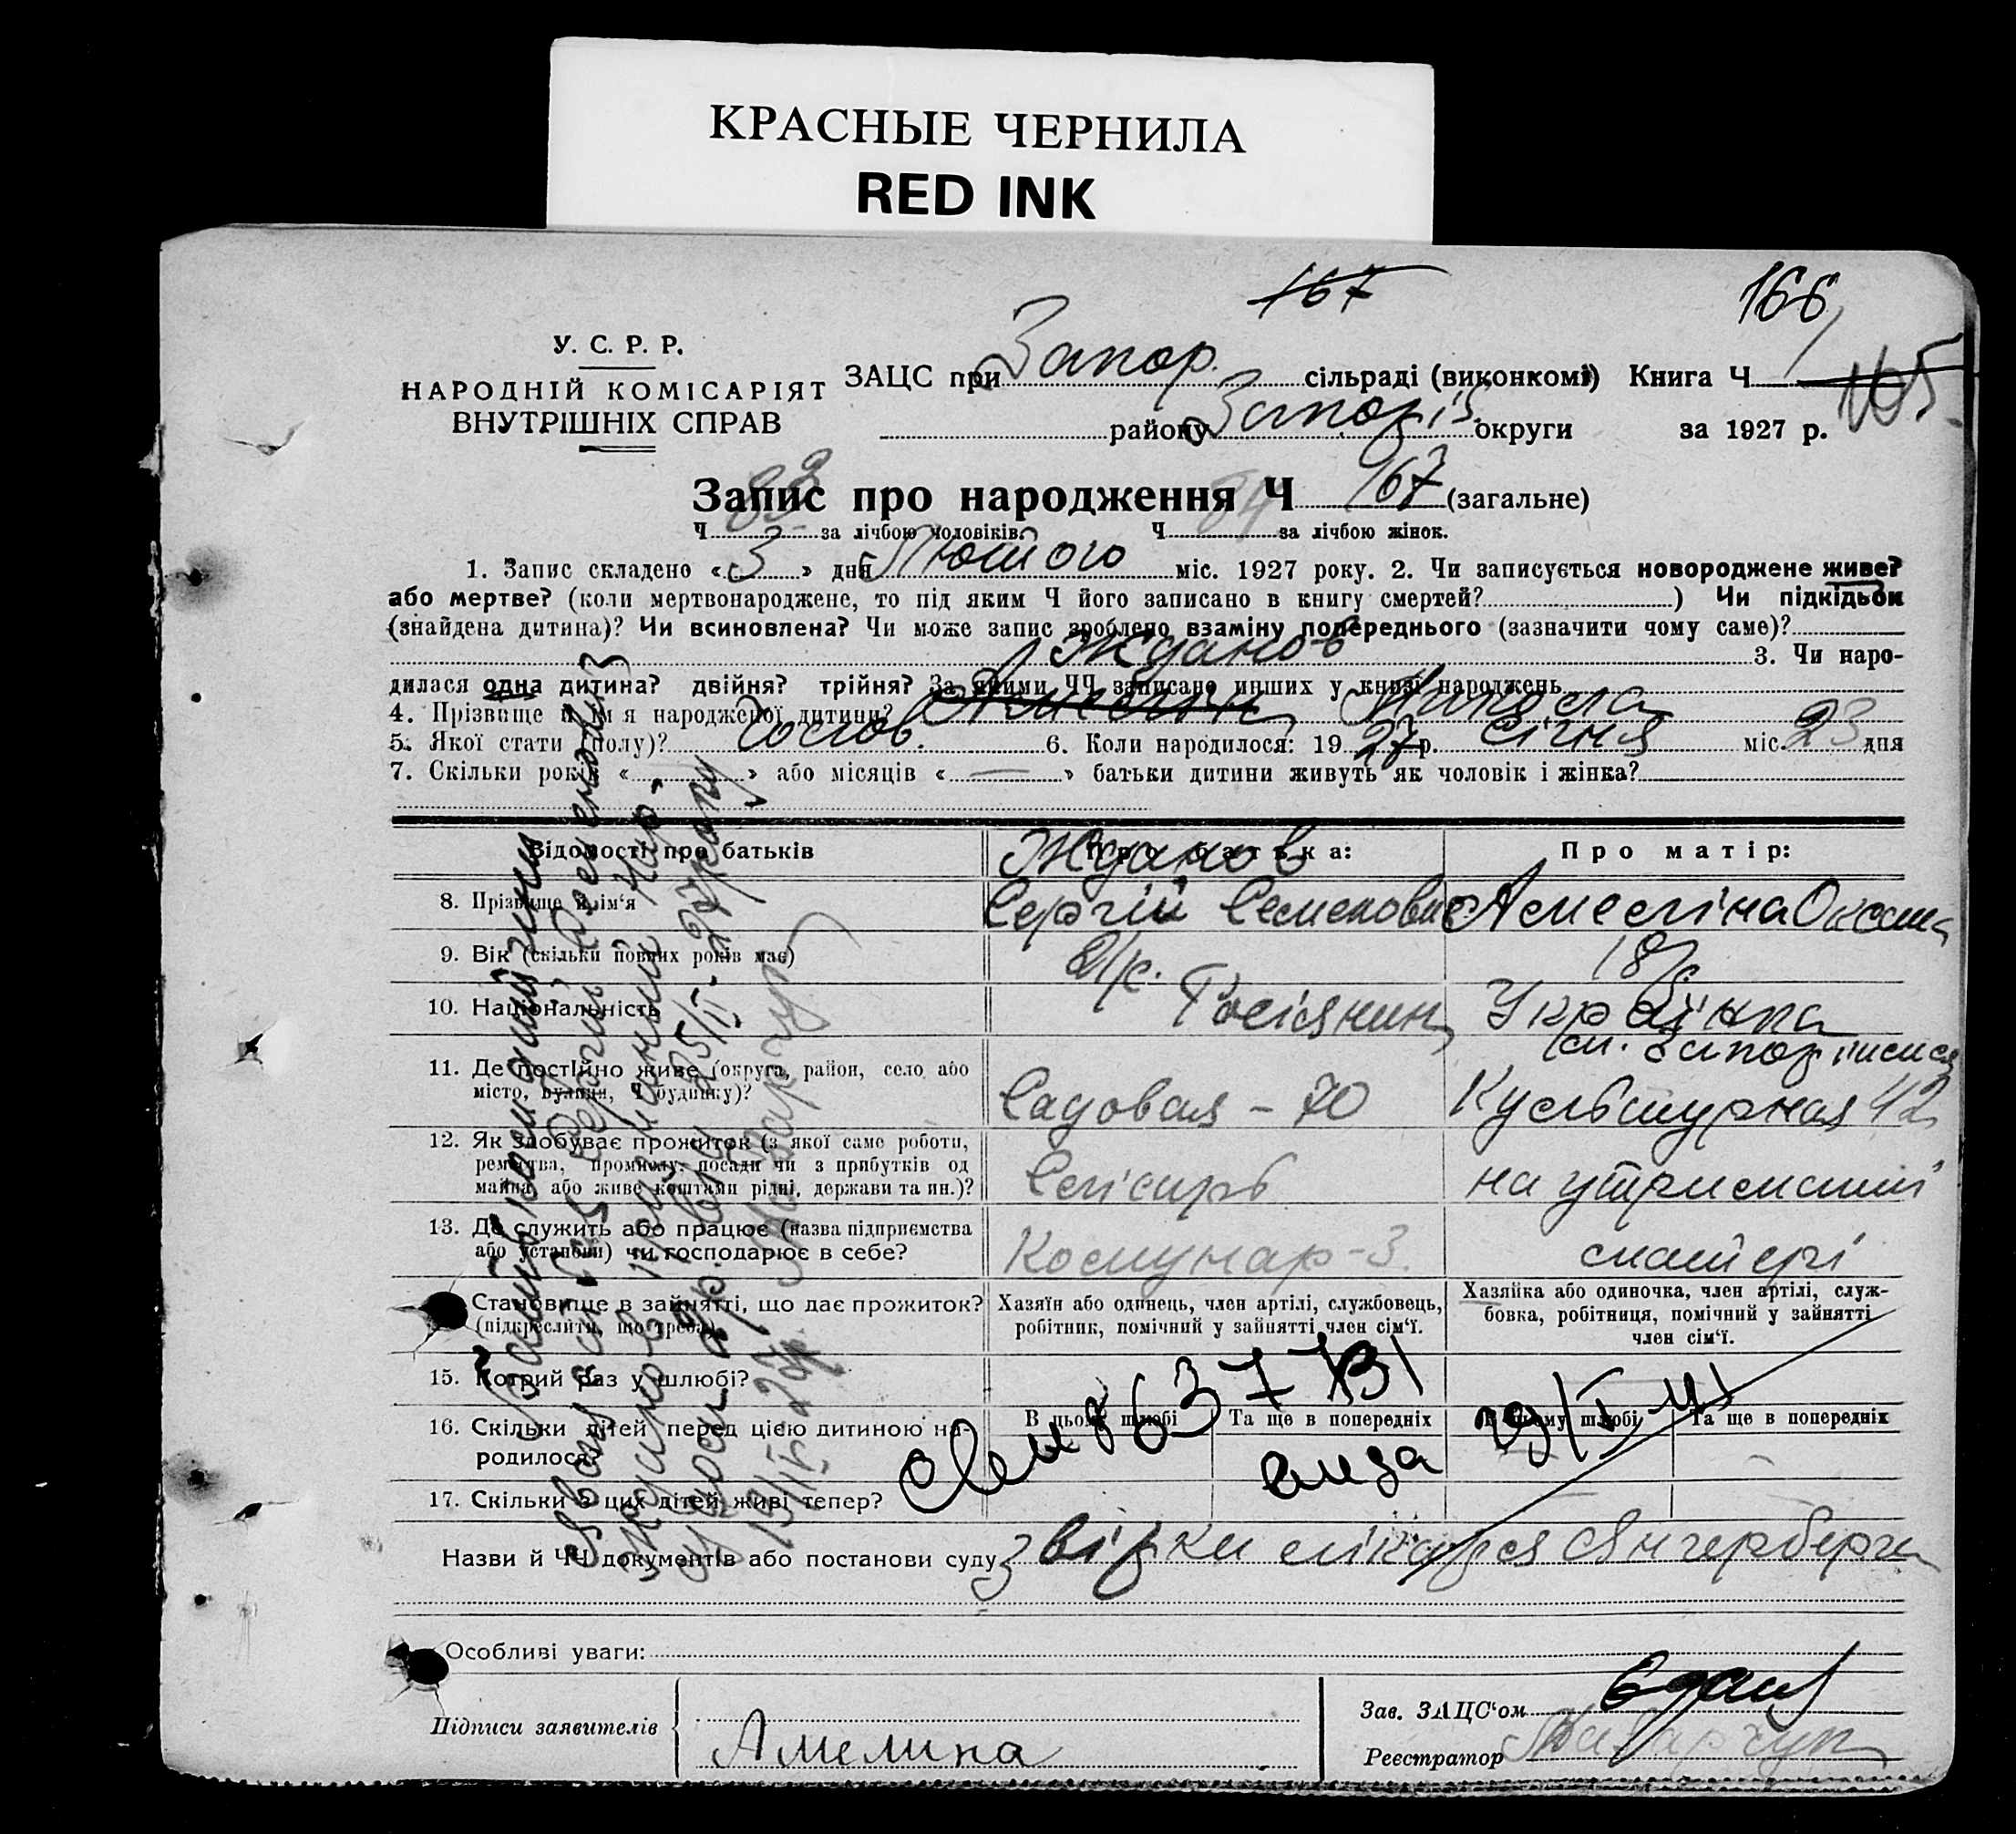 КРАСНЫЕ ЧЕРНИЛА
RED INK
167
166
У. С. Р. Р.
НАРОДНІЙ КОМІСАРІЯТ
ВНУТРІШНІХ СПРАВ
ЗАЦС при Запор. сільраді (виконкомі) Книга Ч 165
району Запоріз. округи за 1927 р.
Запис про народження Ч 167 (загальне)
Ч 83 за лічбою чоловіків. Ч 84 за лічбою жінок.
1. Запис складено « 3 » дня Лютого міс. 1927 року. 2. Чи записується новороджене живе?
або мертве? (коли мертвонароджене, то під яким Ч його записано в книгу смертей? ) Чи підкідьок
(знайдена дитина)? Чи всиновлена? Чи може запис зроблено взаміну попереднього (зазначити чому саме)?
3. Чи наро-
дилася одна дитина? двійня? трійня? За якими ЧЧ записано инших у книзі народжень
Жданов
4. Прізвище й ім'я народженої дитини? Амелін Микола
5. Якої стати (полу)? Чолов. 6. Коли народилося: 19 27 р. січня міс. 23 дня
7. Скільки років « » або місяців « — » батьки дитини живуть як чоловік і жінка?
Відомості про батьків Про батька: Про матір:
Жданов
8. Прізвище й ім'я Сергій Семенович Амеліна Оксана
9. Вік (скільки повних років має) 21 р. 18 р.
10. Національність Росіянин Українка
м. Запоріжжя
11. Де постійно живе (округа, район, село або
місто, вулиця, Ч будинку)? Садовая - 70 Культурная 42
12. Як здобуває прожиток (з якої саме роботи,
ремества, промислу, посади чи з прибутків од
майна, або живе коштами рідні, держави та ин.)? Слісарь на утриманні
13. Де служить або працює (назва підприємства
або установи) чи господарює в себе? Комунар-3. матері
Становище в зайнятті, що дає прожиток?
(підкреслити, що треба)
Хазяїн або одинець, член артілі, службовець,
робітник, помічний у зайнятті член сім'ї.
Хазяйка або одиночка, член артілі, служ-
бовка, робітниця, помічний у зайнятті
член сім'ї.
15. Котрий раз у шлюбі?
16. Скільки дітей перед цією дитиною на-
родилося?
В цьому шлюбі Та ще в попередніх В цьому шлюбі Та ще в попередніх
17. Скільки з цих дітей живі тепер?
Назви й ЧЧ документів або постанови суду
Особливі уваги:
Підписи заявителів Амелина
Зав. ЗАЦС'ом
Реєстратор